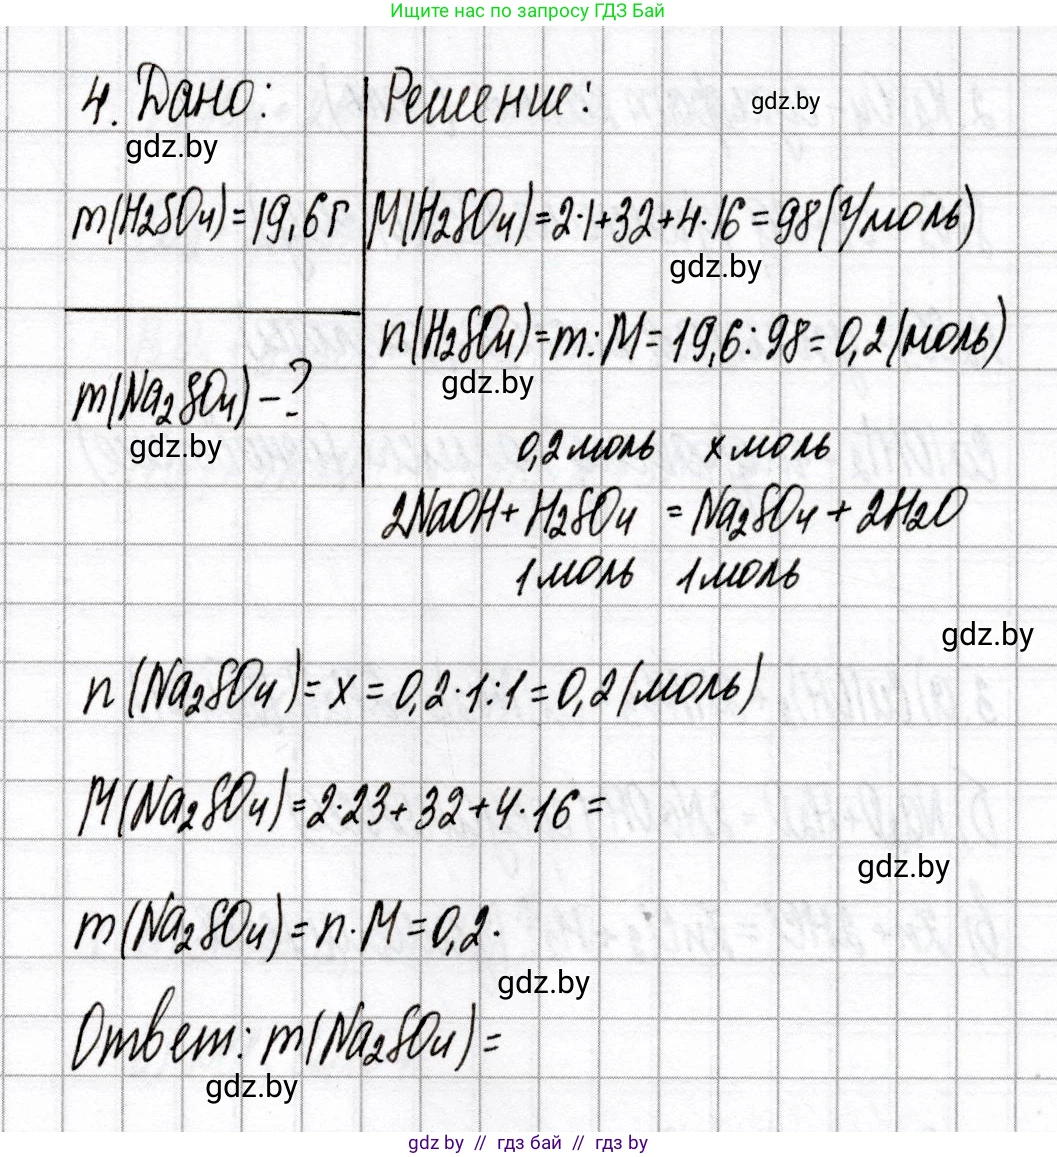 Ищите нас по запросу ГДЗ Бай
4. Дано:
Решение:
gdz.by
gdz.by
m(H₂SO₄)=19,6 г
M(H₂SO₄)=2·1+32+4·16=98(г/моль)
gdz.by
n(H₂SO₄)=m:M=19,6:98=0,2(моль)
gdz.by
m(Na₂SO₄)-?
gdz.by
0,2 моль x моль
2NaOH+H₂SO₄ = Na₂SO₄+2H₂O
1 моль 1 моль
gdz.by
n(Na₂SO₄)=x=0,2·1:1=0,2(моль)
M(Na₂SO₄)=2·23+32+4·16=
gdz.by
m(Na₂SO₄)=n·M=0,2·
gdz.by
Ответ: m(Na₂SO₄)=
gdz.by
gdz by // гдз бай // гдз by